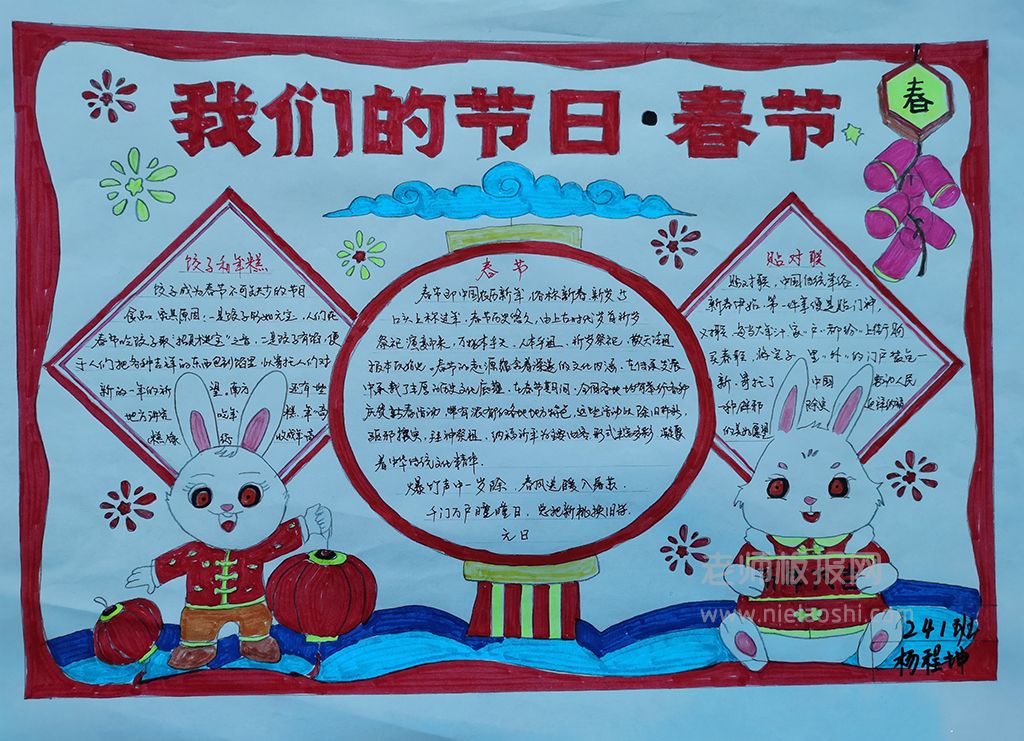 我们的节日·春节
春
饺子和年糕
饺子成为春节不可缺少的节目
食品，究其原因：一是饺子形如元宝，人们在
春节吃饺子取"招财进宝"之音，二是饺子有馅，便
于人们把各种吉祥的东西包到馅里，以寄托人们对
新的一年的祈望，南方还有些
地方讲究吃年糕，年年
糕
春节
春节即中国农历新年，俗称新春、新岁、
口头上称过年，春节历史悠久，由上古时代岁首祈岁
祭祀演变而来，万物本乎天、人本乎祖、祈岁祭祀、敬天法祖
报本反始也。春节的起源蕴含着深邃的文化内涵，在传承发展
中承载了丰厚的历史文化底蕴，在春节期间，全国各地均有举行各种
庆贺新春活动，带有浓郁的各地地方特色，这些活动以除旧布新、
驱邪攘灾、拜神祭祖、纳福祈年为主要内容，形式丰富多彩，凝聚
着中华传统文化精华。
爆竹声中一岁除，春风送暖入屠苏。
千门万户曈曈日，总把新桃换旧符。
元日
贴对联
贴对联，中国传统年俗，
新春伊始，第一件事便是贴门神，
对联，每当大年三十，家户户都纷纷上街购
买春联，将宅子里里外外的门户装点一
新，寄托了中国劳动人民
一种辟邪除灾、迎祥纳福
的美好愿望
老师板报网
www.nielaoshi.com
241班
杨程坤